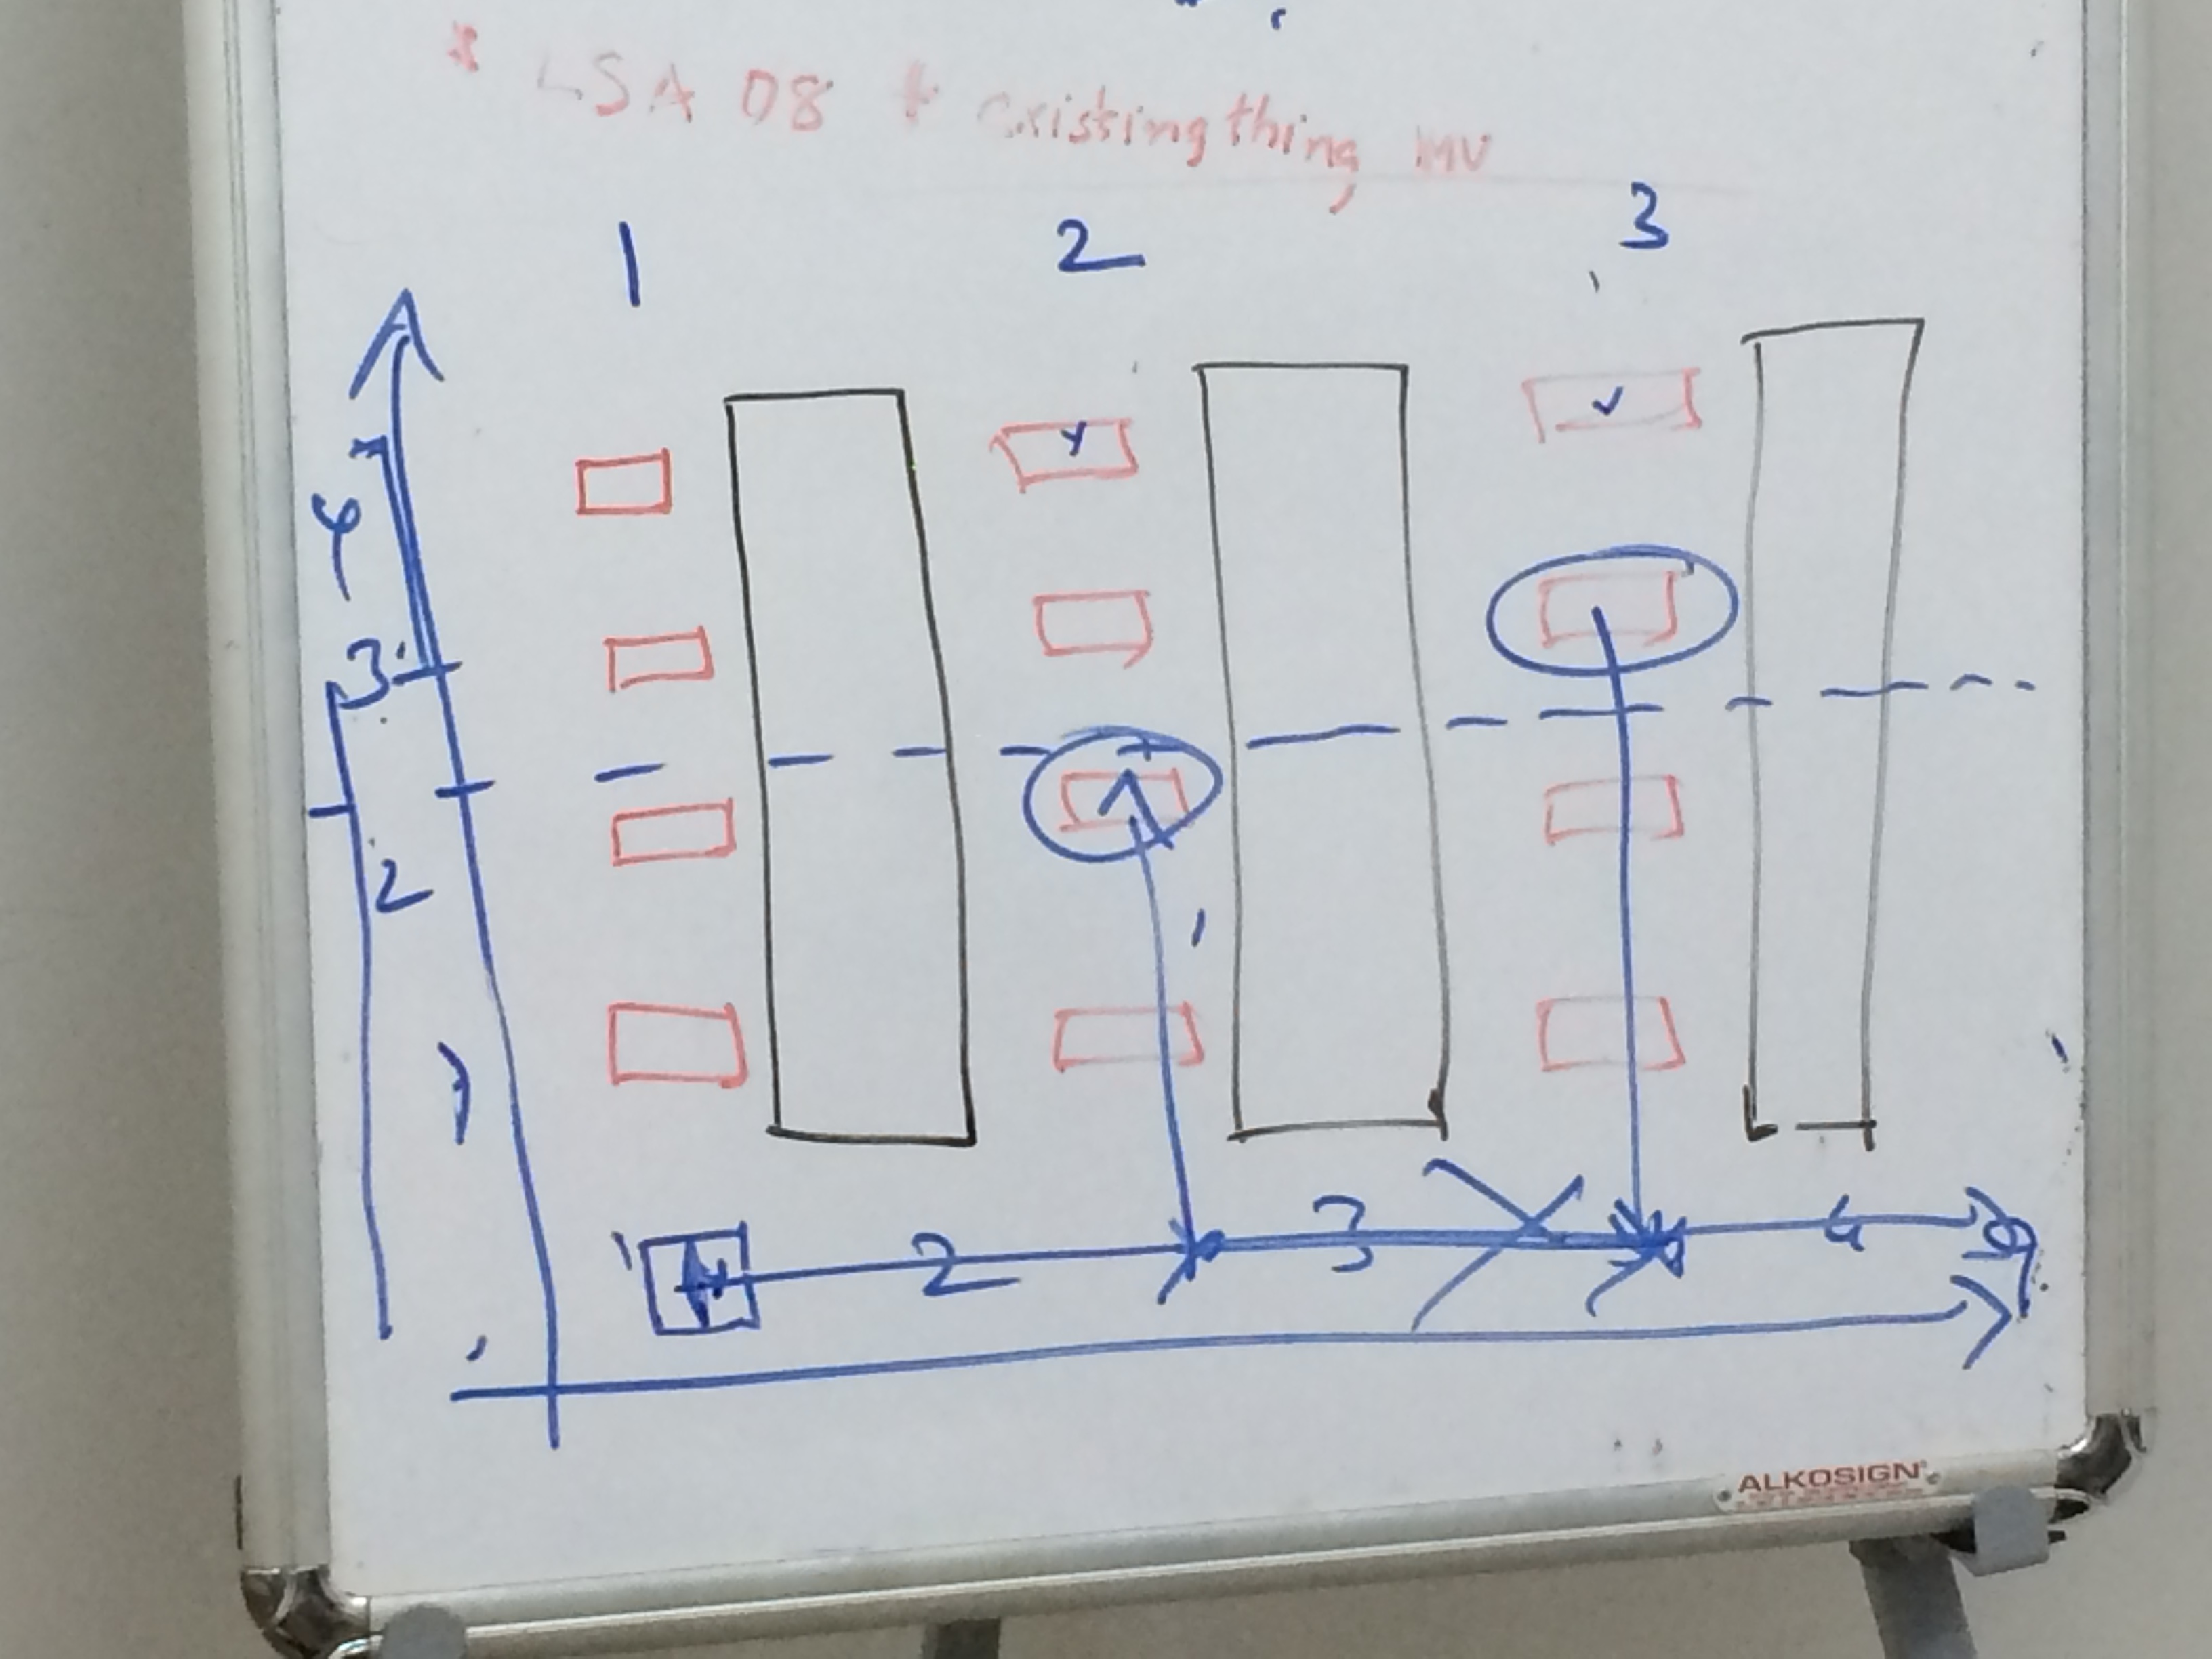 * LSA 08 + existing thing MV
1 2 3
4
3
2
1
1 2 3 4
ALKOSIGN